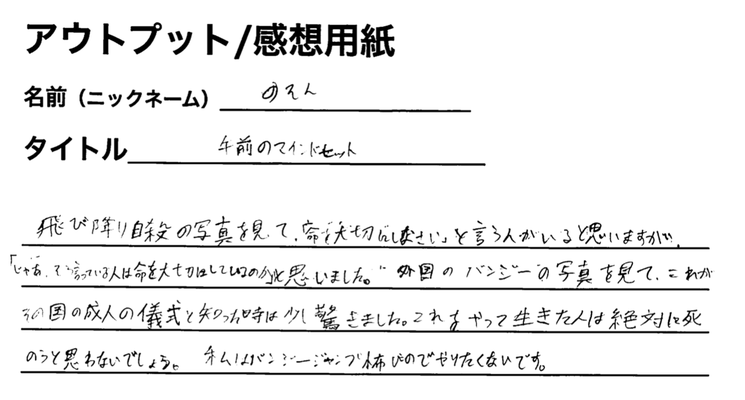 アウトプット/感想用紙
名前（ニックネーム） のえん
タイトル 午前のマインドセット
飛び降り自殺の写真を見て、命を大切にしなさい」と言う人がいると思いますが、
「じゃあ、そう言っている人は命を大切にしているのか」と思いました。 外国のバンジーの写真を見て、これが
その国の成人の儀式と知った時は少し驚きました。これをやって生きた人は絶対に死
のうと思わないでしょう。 私はバンジージャンプ怖いのでやりたくないです。